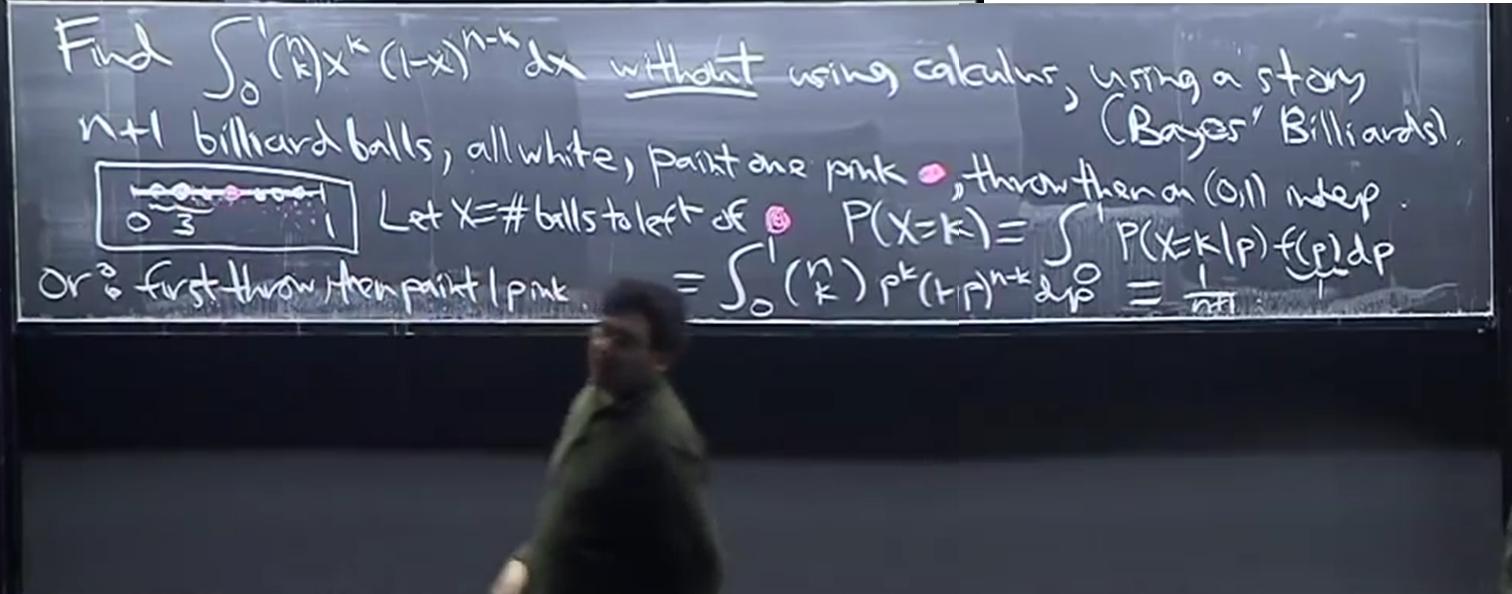 Find ∫₀¹ (n k) x^k (1-x)^{n-k} dx without using calculus, using a story
(Bayes' Billiards).
n+1 billiard balls, all white, paint one pink, throw them on (0,1) indep.
0 3 1
Let X = # balls to left of P(X=k) = ∫₀¹ P(X=k|p) f(p) dp
1
or: first throw, then paint 1 pink. = ∫₀¹ (n k) p^k (1-p)^{n-k} dp = 1/(n+1)